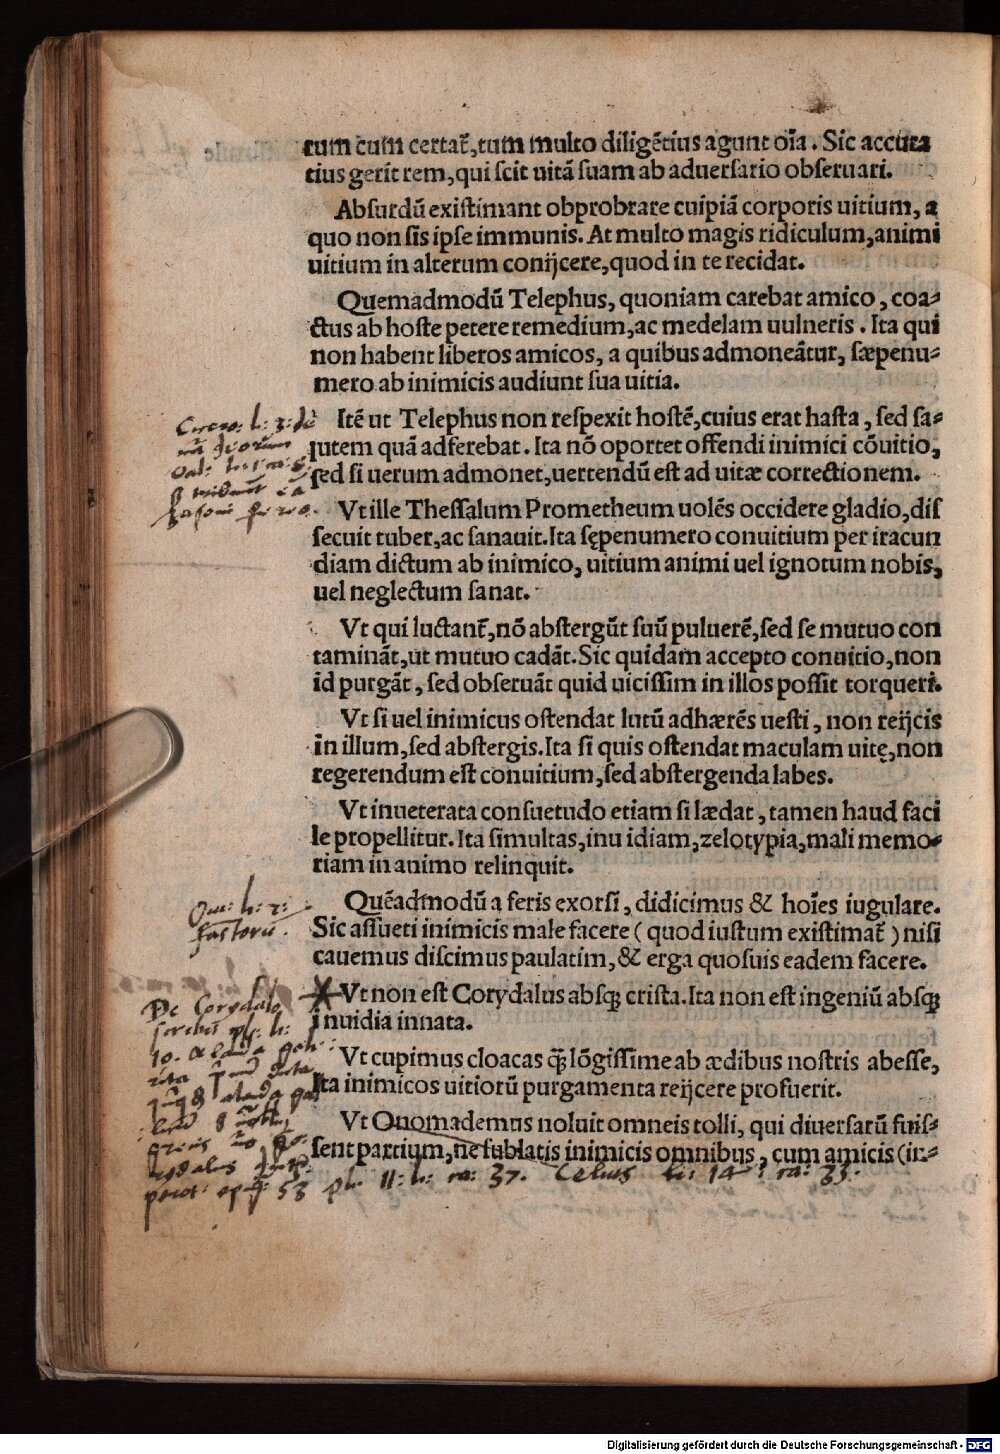 tum cum certat̃, tum multo diligẽtius agunt oĩa. Sic accura
tius gerit rem, qui scit uitã suam ab aduersario obseruari.
Absurdũ existimant obprobrare cuipiã corporis uitium, a
quo non sis ipse immunis. At multo magis ridiculum, animi
uitium in alterum conijcere, quod in te recidat.
Quemadmodũ Telephus, quoniam carebat amico, coa-
ctus ab hoste petere remedium, ac medelam uulneris. Ita qui
non habent liberos amicos, a quibus admoneãtur, sæpenu-
mero ab inimicis audiunt sua uitia.
Itẽ ut Telephus non respexit hostẽ, cuius erat hasta, sed sa-
lutem quã adferebat. Ita nõ oportet offendi inimici cõuitio,
sed si uerum admonet, uertendũ est ad uitæ correctionem.
Vt ille Thessalum Prometheum uolẽs occidere gladio, dis
secuit tuber, ac sanauit. Ita sępenumero conuitium per iracun
diam dictum ab inimico, uitium animi uel ignotum nobis,
uel neglectum sanat.
Vt qui luctant̃, nõ abstergũt suũ puluerẽ, sed se mutuo con
taminãt, ut mutuo cadãt. Sic quidam accepto conuitio, non
id purgãt, sed obseruãt quid uicissim in illos possit torqueri.
Vt si uel inimicus ostendat lutũ adhærẽs uesti, non reijcis
in illum, sed abstergis. Ita si quis ostendat maculam uitę, non
regerendum est conuitium, sed abstergenda labes.
Vt inueterata consuetudo etiam si lædat, tamen haud faci
le propellitur. Ita simultas, inuidiam, zelotypia, mali memo-
riam in animo relinquit.
Quẽadmodũ a feris exorsi, didicimus & hoĩes iugulare.
Sic assueti inimicis male facere (quod iustum existimat̃) nisi
cauemus discimus paulatim, & erga quosuis eadem facere.
Vt non est Corydalus absq; crista. Ita non est ingeniũ absq;
inuidia innata.
Vt cupimus cloacas q̃ lõgissime ab ædibus nostris abesse,
Ita inimicos uitiorũ purgamenta reijcere profuerit.
Vt Onomademus noluit omneis tolli, qui diuersarũ fuis-
sent partium, ne sublatis inimicis omnibus, cum amicis (in-
Cicero: li: 3: de
De Corydalo
58 pl. 11: li: ra: 37. Celius li: 14: ra: 33.
Digitalisierung gefördert durch die Deutsche Forschungsgemeinschaft - DFG